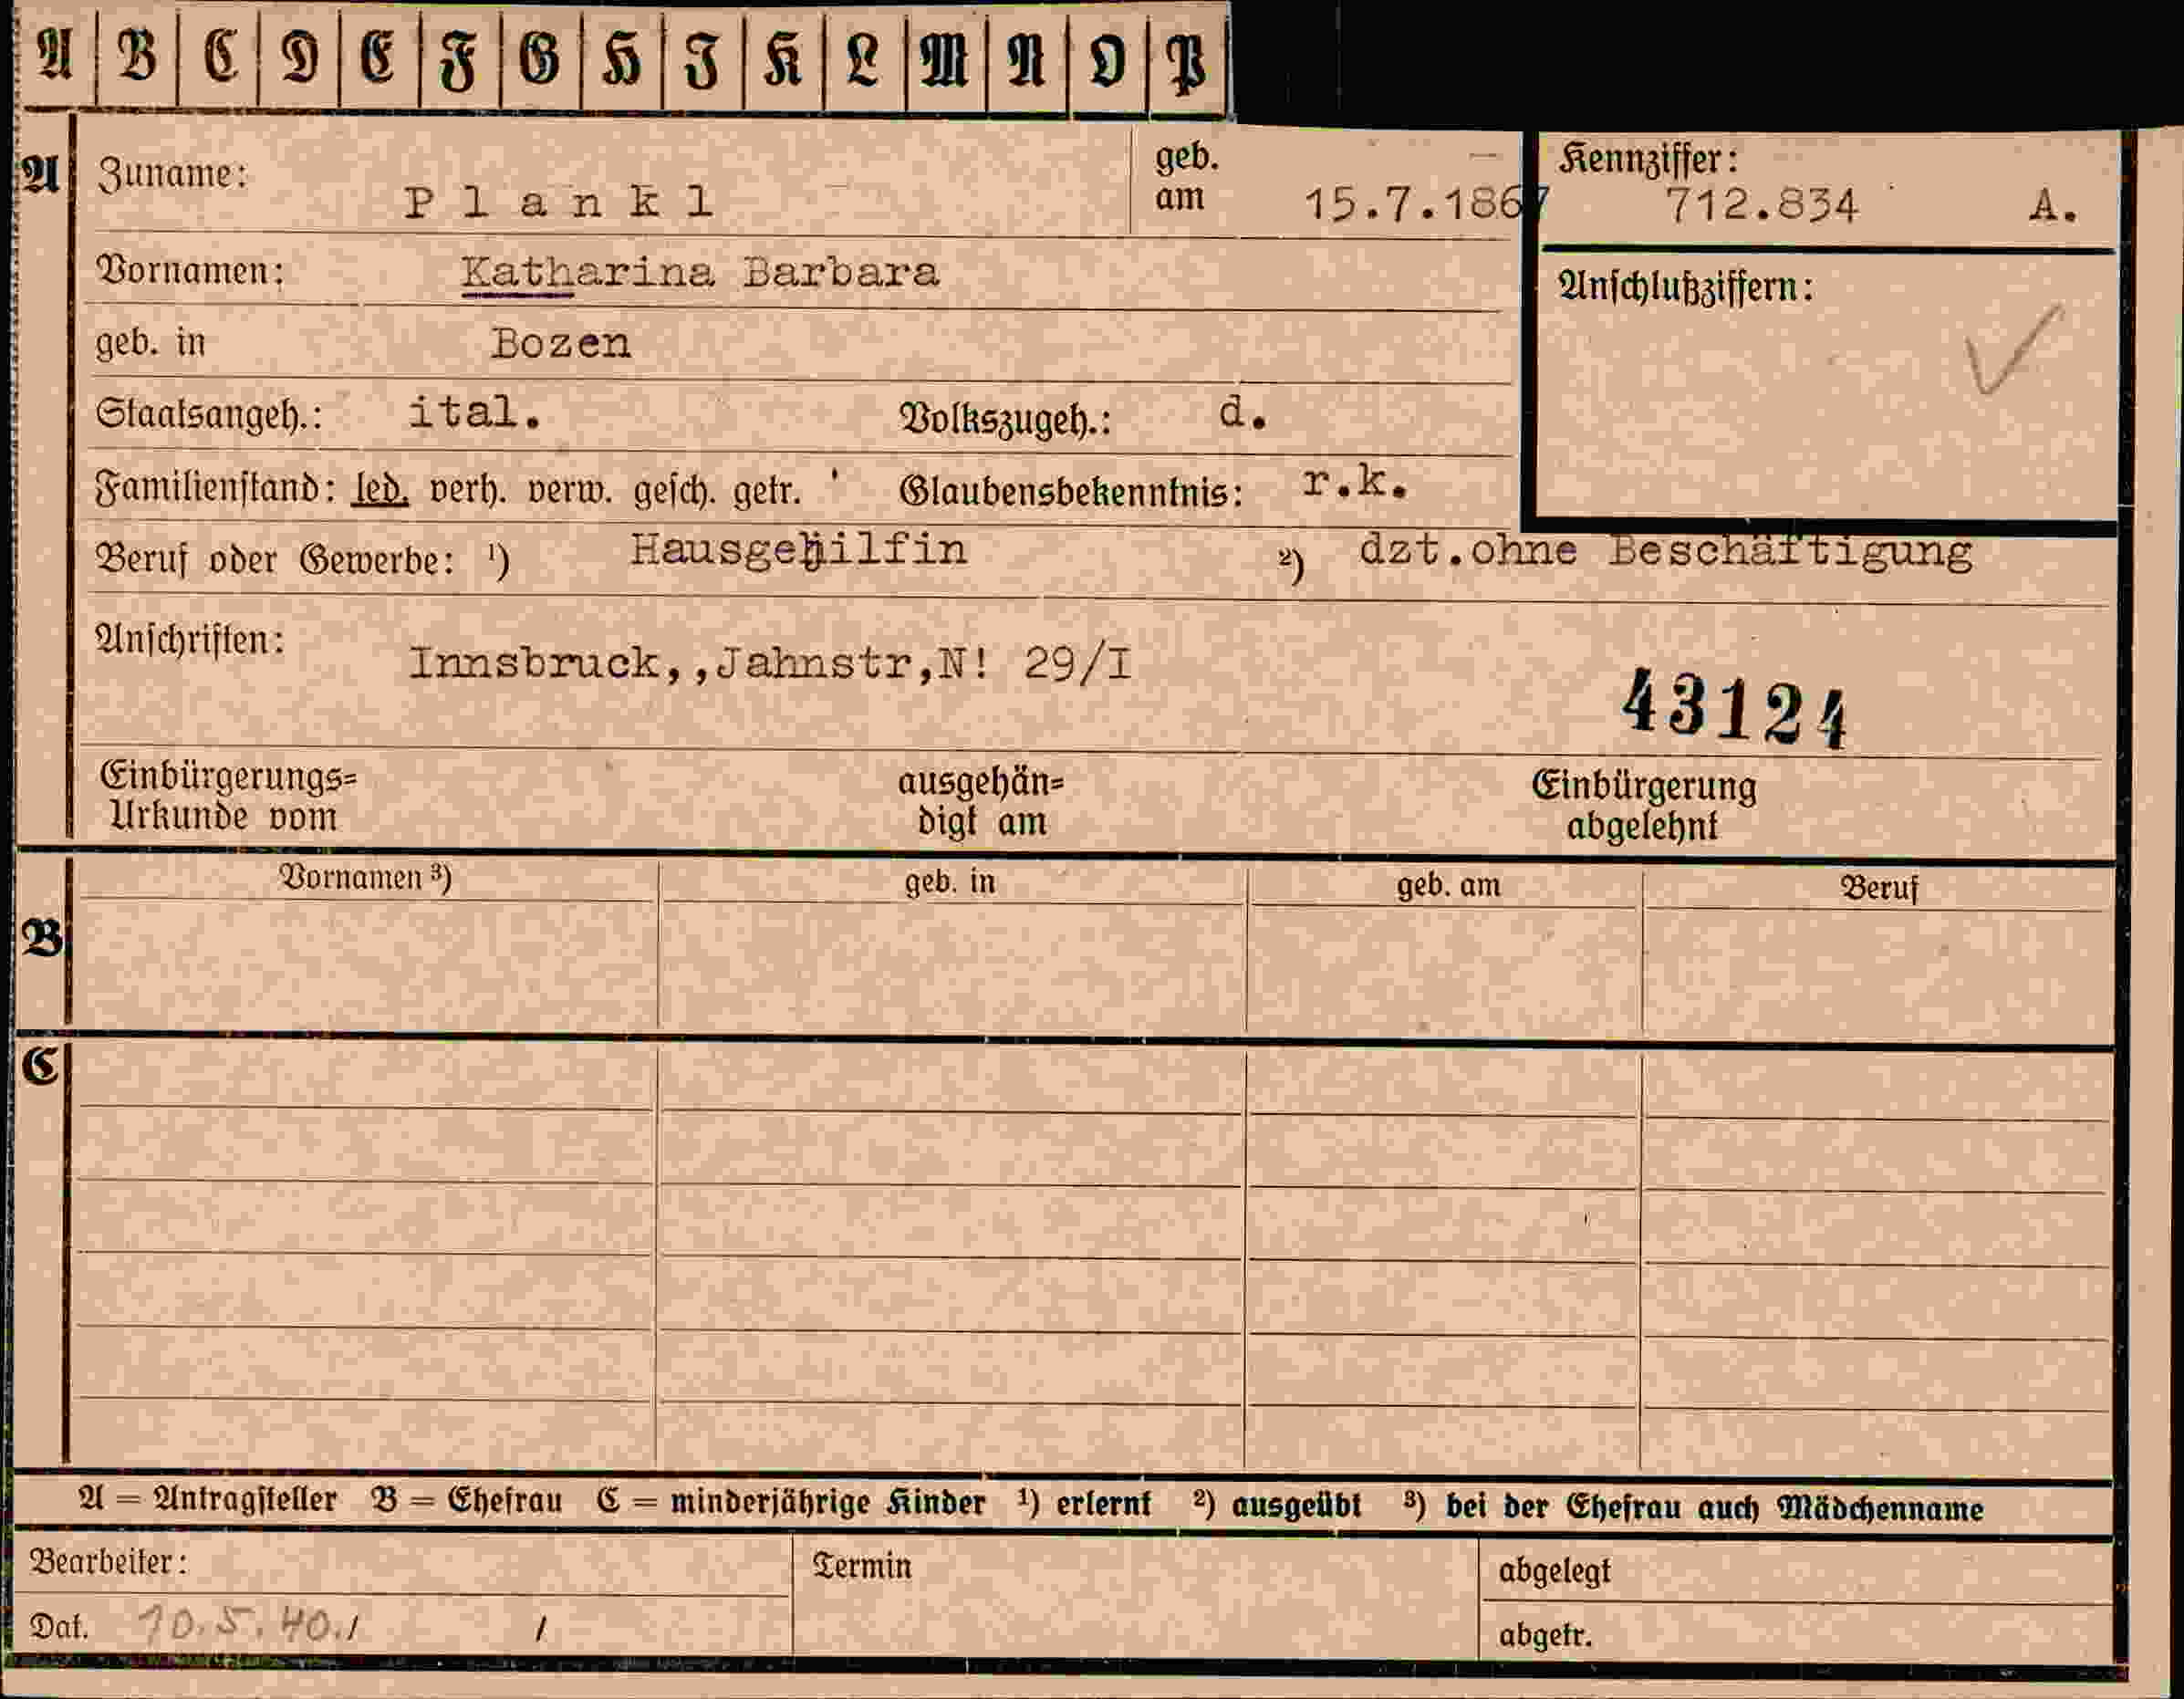 A B C D E F G H I K L M N O P
A Zuname: Plankl geb. am 15.7.1867 Kennziffer: 712.834 A.
Vornamen: Katharina Barbara Anschlußziffern:
geb. in Bozen
Staatsangeh.: ital. Volkszugeh.: d.
Familienstand: led. verh. verw. gesch. getr. Glaubensbekenntnis: r.k.
Beruf oder Gewerbe: ¹) Hausgehilfin ²) dzt.ohne Beschäftigung
Anschriften: Innsbruck,,Jahnstr,N! 29/I
43124
Einbürgerungs= ausgehän= Einbürgerung
Urkunde vom digt am abgelehnt
B Vornamen ³) geb. in geb. am Beruf
C
A = Antragsteller B = Ehefrau C = minderjährige Kinder ¹) erlernt ²) ausgeübt ³) bei der Ehefrau auch Mädchenname
Bearbeiter: Termin abgelegt
Dat. 10.5.40./ / abgetr.